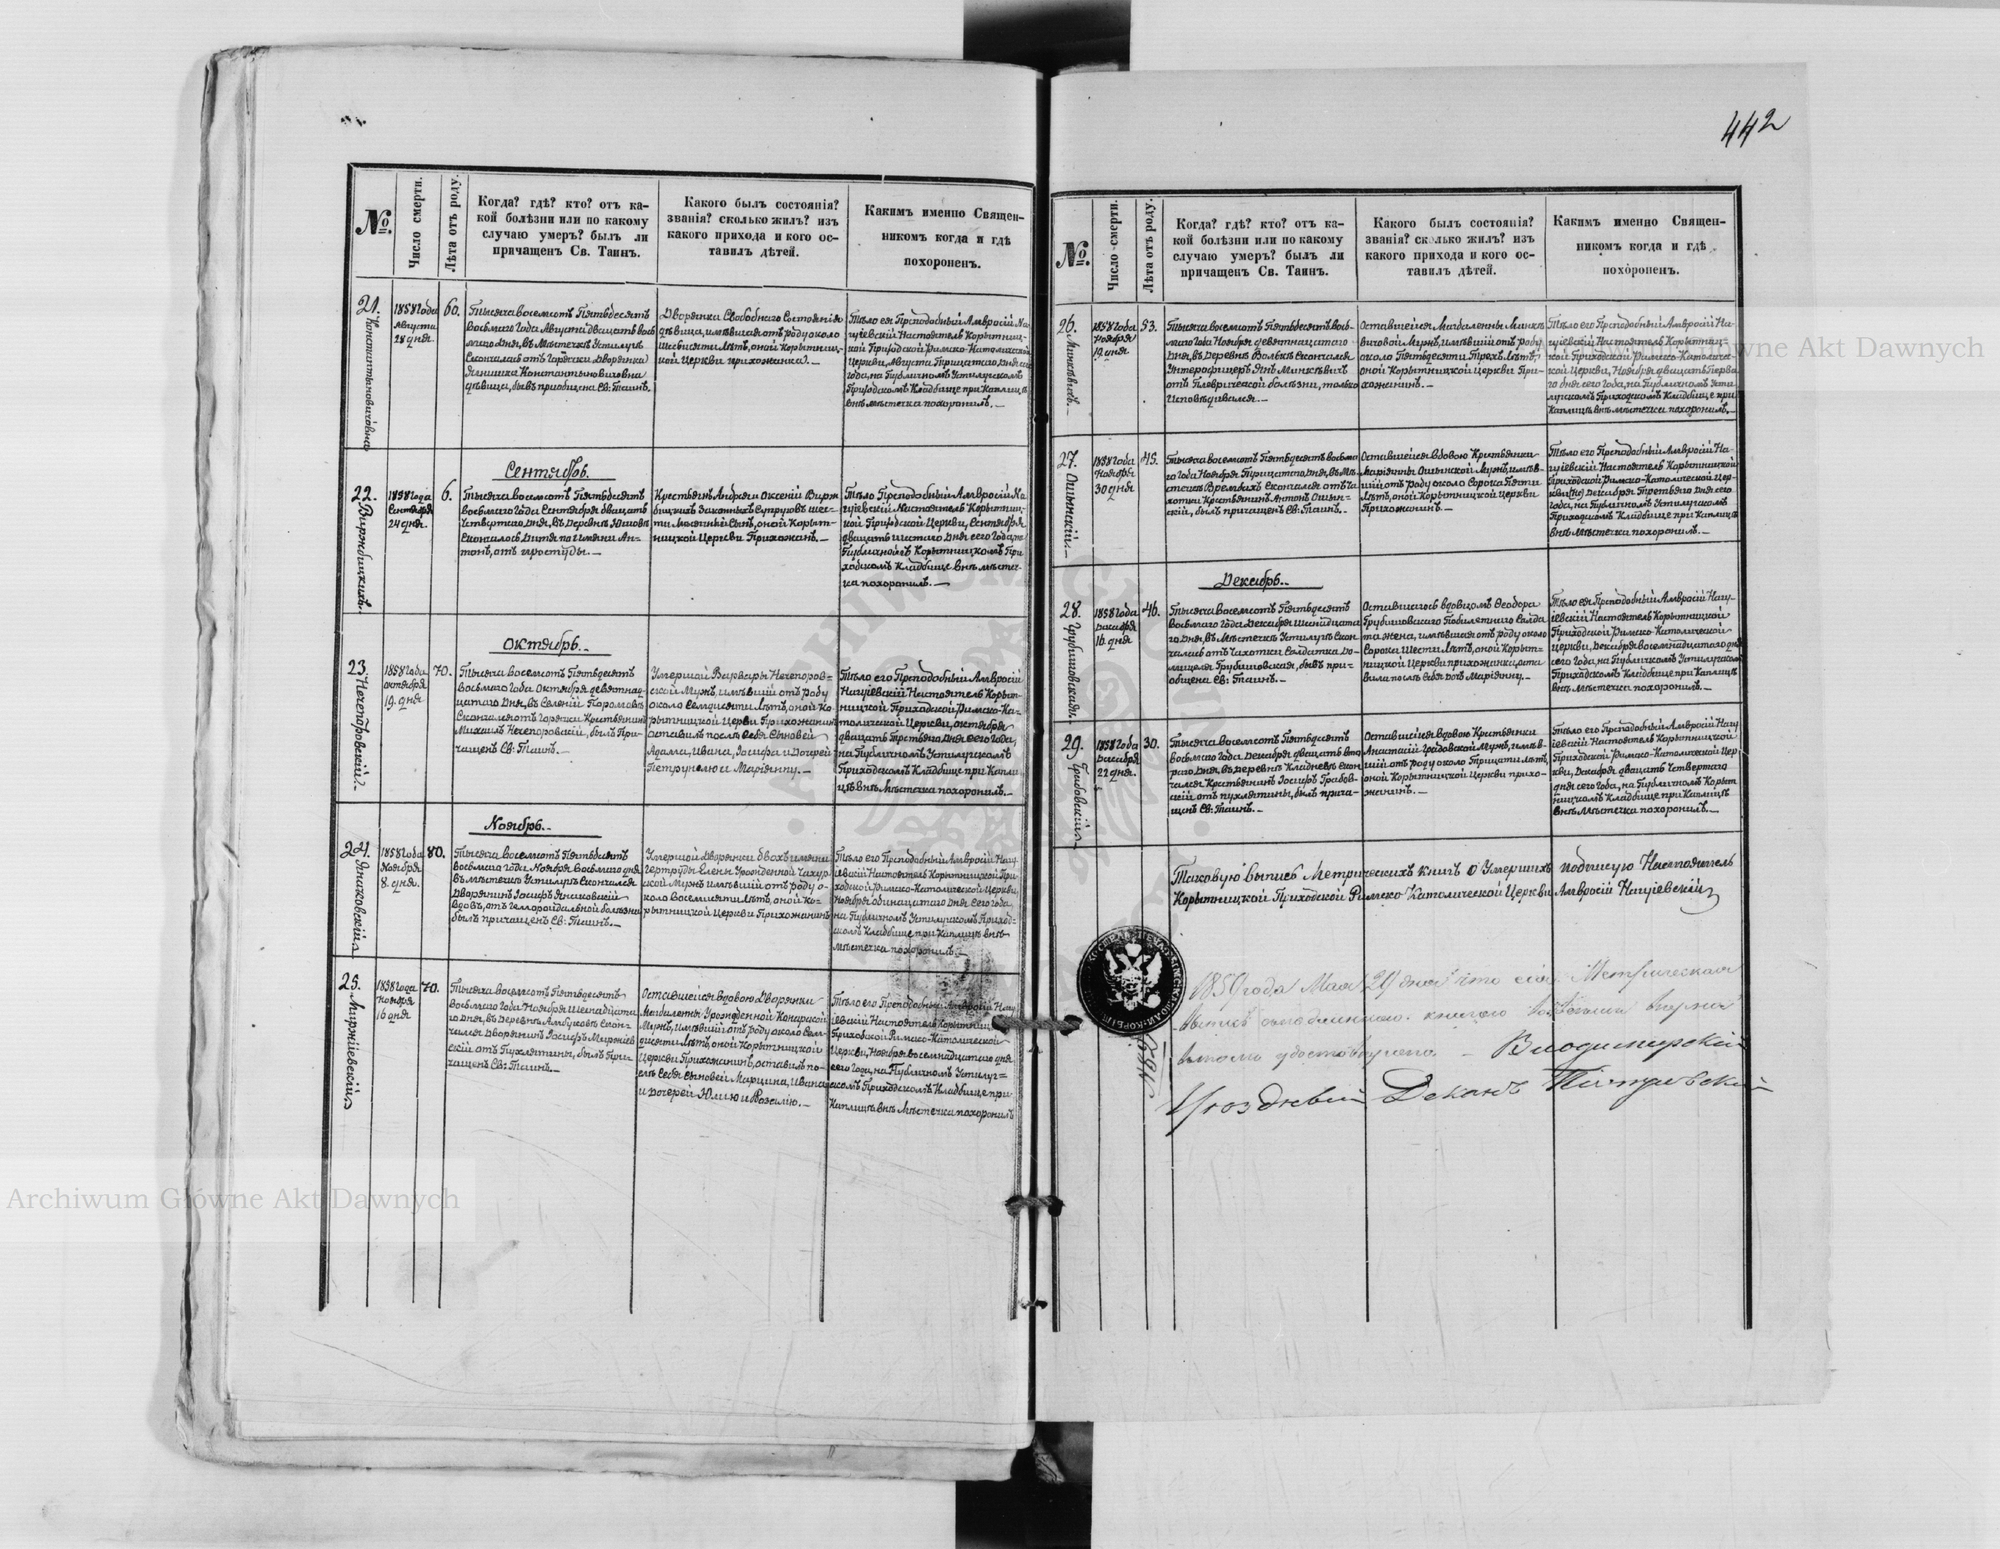 442
№
Число смерти.
Лѣта отъ роду.
Когда? гдѣ? кто? отъ ка-
кой болѣзни или по какому
случаю умеръ? былъ ли
причащенъ Св. Таинъ.
Какого былъ состоянія?
званія? сколько жилъ? изъ
какого прихода и кого ос-
тавилъ дѣтей.
Какимъ именно Священ-
никомъ когда и гдѣ
похороненъ.
21.
Константиновичовна
1858 Года
Августа
28 дня.
60.
Тысяча восемсотъ Пятьдесятъ
восьмаго Года Августа двацать вось
маго Дня, въ Мѣстечкѣ Устилугѣ
Скончалась отъ Горячки Дворянка
Константиновичовна
дѣвица, бывъ приобщена Св: Таинъ.
Дворянки Свободнаго Состоянія
дѣвица, имѣвшая отъ роду около
Шесьдисяти Лѣтъ, оной Корытниц-
кой Церкви прихожанка. —
Тѣло ея Преподобный Амвросій На-
гуіевскій Настоятель Корытниц-
кой Приходской Римско-Католической
Церкви, Августа Трицатаго Дня сего
года, на Публичномъ Устилугскомъ
Приходскомъ Кладбище при Каплицѣ
внѣ мѣстечка похоронилъ. —
Сентябрь.
22.
1858 Года
Сентября
24 дня.
6.
Тысяча восемсотъ Пятьдесятъ
восьмаго Года Сентября двацать
Четвертаго Дня, въ Деревнѣ
Скончалось Дитя по имени Ан-
тонъ, отъ простуды. —
Крестьянъ Андрея и Оксеніи
бицкихъ Законныхъ Супруговъ шес-
ти Мѣсячный Сынъ, оной Корыт-
ницкой Церкви Прихожанъ. —
Тѣло Преподобный Амвросій На-
гуіевскій Настоятель Корытниц-
кой Приходской Церкви, Сентября
двацать шестаго Дня сего Года, на
Публичномъ Корытницкомъ При-
ходскомъ Кладбище внѣ мѣстеч-
ка похоронилъ. —
Октябрь.
23.
Нечепоровскій.
1858 Года
октября
19. дня.
70.
Тысяча восемсотъ Пятьдесятъ
восьмаго Года Октября девятнад-
цатаго Дня, въ Селеніи
Скончался отъ Горячки Крестьянинъ
Михаилъ Нечепоровскій, былъ При-
чащенъ Св: Таинъ. —
Умершой Варвары Нечепоров-
ской Мужъ, имѣвшій отъ роду
около Семдисяти Лѣтъ, оной Ко-
рытницкой Церкви Прихожанинъ
оставилъ послѣ Себя Сыновей
Адама, Ивана, Іосифа и Дочерей
Петрунелю и Маріянну. —
Тѣло его Преподобный Амвросій
Нагуіевскій Настоятель Корыт-
ницкой Приходской Римско-Ка-
толической Церкви, октября
двацать Третьяго Дня сего Года,
на Публичномъ Устилугскомъ
Приходскомъ Кладбище при Капли-
цѣ внѣ Мѣстечка похоронилъ. —
Ноябрь.
24.
Янаковскій
1858 Года
Ноября
8. дня.
80.
Тысяча восемсотъ Пятьдесятъ
восьмаго Года Ноября Восьмаго дня
въ Мѣстечкѣ Устилугѣ Скончался
Дворянинъ Іосифъ Янаковскій
Вдовъ, отъ Геммороидальной болѣзни
былъ причащенъ Св: Таинъ. —
Умершой Дворянки двохъ имянъ
Гертруды Елены Урожденной
ской Мужъ имѣвшій отъ роду о-
коло Восемдисяти Лѣтъ, оной Ко-
рытницкой Церкви Прихожанинъ
Тѣло его Преподобный Амвросій Нагу-
іевскій Настоятель Корытницкой При-
ходской Римско-Католической Церкви,
Ноября одинацатаго дня Сего года,
на Публичномъ Устилугскомъ Приход-
скомъ Кладбище при Каплицѣ внѣ
Мѣстечка похоронилъ. —
25.
Миржіевскій
1858 Года
Ноября
16 дня
70.
Тысяча восемсотъ Пятьдесятъ
восьмаго Года Ноября Шестнадцата-
го Дня, въ Деревнѣ Амбуковѣ скон-
чался Дворянинъ Іосифъ Миржіев-
скій отъ Пухлятины, былъ При-
чащенъ Св: Таинъ. —
Оставшейся Вдовою Дворянки
Магдалены Урожденной Конарской
Мужъ, имѣвшій отъ роду около Сем-
дисяти Лѣтъ, оной Корытницкой
Церкви Прихожанинъ, оставилъ по-
слѣ Себя Сыновей Марцина, Ивана
и дочерей Юлию и Розалию. —
Тѣло его Преподобный Амвросій Нагу-
іевскій Настоятель Корытницкой
Приходской Римско-Католической
Церкви, Ноября восемнадцатаго дня
сего года, на Публичномъ Устилуг-
скомъ Приходскомъ Кладбище при
Каплицѣ внѣ Мѣстечка похоронилъ
№
Число смерти.
Лѣта отъ роду.
Когда? гдѣ? кто? отъ ка-
кой болѣзни или по какому
случаю умеръ? былъ ли
причащенъ Св. Таинъ.
Какого былъ состоянія?
званія? сколько жилъ? изъ
какого прихода и кого ос-
тавилъ дѣтей.
Какимъ именно Священ-
никомъ когда и гдѣ
похороненъ.
26.
Минкѣвичъ.
1858 Года
Ноября
19. дня
53.
Тысяча восемсотъ Пятьдесятъ вось-
маго Года Ноября девятнадцатаго
Дня, въ Деревнѣ Волькѣ Скончался
Унтерофицеръ Янъ Минкѣвичъ
отъ Плеврической болѣзни, только
Исповѣдывался. —
Оставшейся Магдалены Минкѣ-
вичовой Мужъ, имѣвшій отъ роду
около Пятьдесяти Трехъ Лѣтъ,
оной Корытницкой Церкви При-
хожанинъ. —
Тѣло его Преподобный Амвросій На-
гуіевскій Настоятель Корытниц-
кой Приходской Римско-Католичес-
кой Церкви, Ноября двацать Перва-
го дня сего Года, на Публичномъ Усти-
лугскомъ Приходскомъ Кладбище при
Каплицѣ внѣ мѣстечка похоронилъ. —
27.
Ошынскій. —
1858 Года
Ноября
30 дня
45.
Тысяча восемсотъ Пятьдесятъ восьма
го Года Ноября Трицатаго Дня, въ
Скончался отъ Ча-
хотки Крестьянинъ Антонъ Ошын-
скій, былъ причащенъ Св: Таинъ. —
Оставшейся Вдовою Крестьянки
Маріянны Ошынской Мужъ, имѣв-
шій отъ роду около Сорока Пяти
Лѣтъ, оной Корытницкой Церкви
Прихожанинъ. —
Тѣло его Преподобный Амвросій На-
гуіевскій Настоятель Корытницкой
Приходской Римско-Католической Цер-
кви, Декабря Третьяго Дня сего
года, на Публичномъ Устилугскомъ
Приходскомъ Кладбище при Каплицѣ
внѣ мѣстечка похоронилъ. —
Декабрь. —
28.
Грубишовская.
1858 Года
Декабря
16. дня
46.
Тысяча восемсотъ Пятьдесятъ
восьмаго Года Декабря Шеснадцата
го Дня, въ Мѣстечкѣ Устилугѣ Скон
чалась отъ Чахотки Солдатка До-
мицеля Грубишовская, бывъ при-
общена Св: Таинъ. —
Оставшагось вдовцомъ Ѳеодора
Грубишовскаго Побилетнаго Салда
та жена, имѣвшая отъ роду около
Сорока Шести Лѣтъ, оной Корыт-
ницкой Церкви прихожанка, оста
вила послѣ Себя дочь Маріянну. —
Тѣло ея Преподобный Амвросій Нагу-
іевскій Настоятель Корытницкой
Приходской Римско-Католической
Церкви, Декабря восемнадцатаго дня
сего Года, на Публичномъ Устилугскомъ
Приходскомъ Кладбище при Каплицѣ
внѣ мѣстечка похоронилъ. —
29.
Грабовскій
1858 Года
Декабря
22 дня.
30.
Тысяча восемсотъ Пятьдесятъ
восьмаго Года Декабря двацать вто
раго Дня, въ Деревнѣ Кладневѣ Скон
чался Крестьянинъ Іосифъ Грабов-
скій отъ пухлятины, былъ прича-
щенъ Св: Таинъ. —
Оставшейся вдовою Крестьянки
Анастасіи Грабовской Мужъ, имѣв-
шій отъ роду около Трицати Лѣтъ,
оной Корытницкой Церкви прихо-
жанинъ. —
Тѣло его Преподобный Амвросій Нагу
іевскій Настоятель Корытницкой
Приходской Римско-Католической Цер
кви, Декабря двацать Четвертаго
дня сего Года, на Публичномъ Корыт
ницкомъ Кладбище при Каплицѣ
внѣ Мѣстечка похоронилъ. —
Таковую выпись Метрическихъ Книгъ о Умершихъ подписую Настоятель
Корытницкой Приходской Римско Католической Церкви Амвросій Нагуіевскій
1859 года Мая 29 дня что сія Метрическая
выпись съ подлинною книгою
въ томъ удостовѣряю — Владимирскій
Уѣздный Деканъ
Archiwum Główne Akt Dawnych
Główne Akt Dawnych